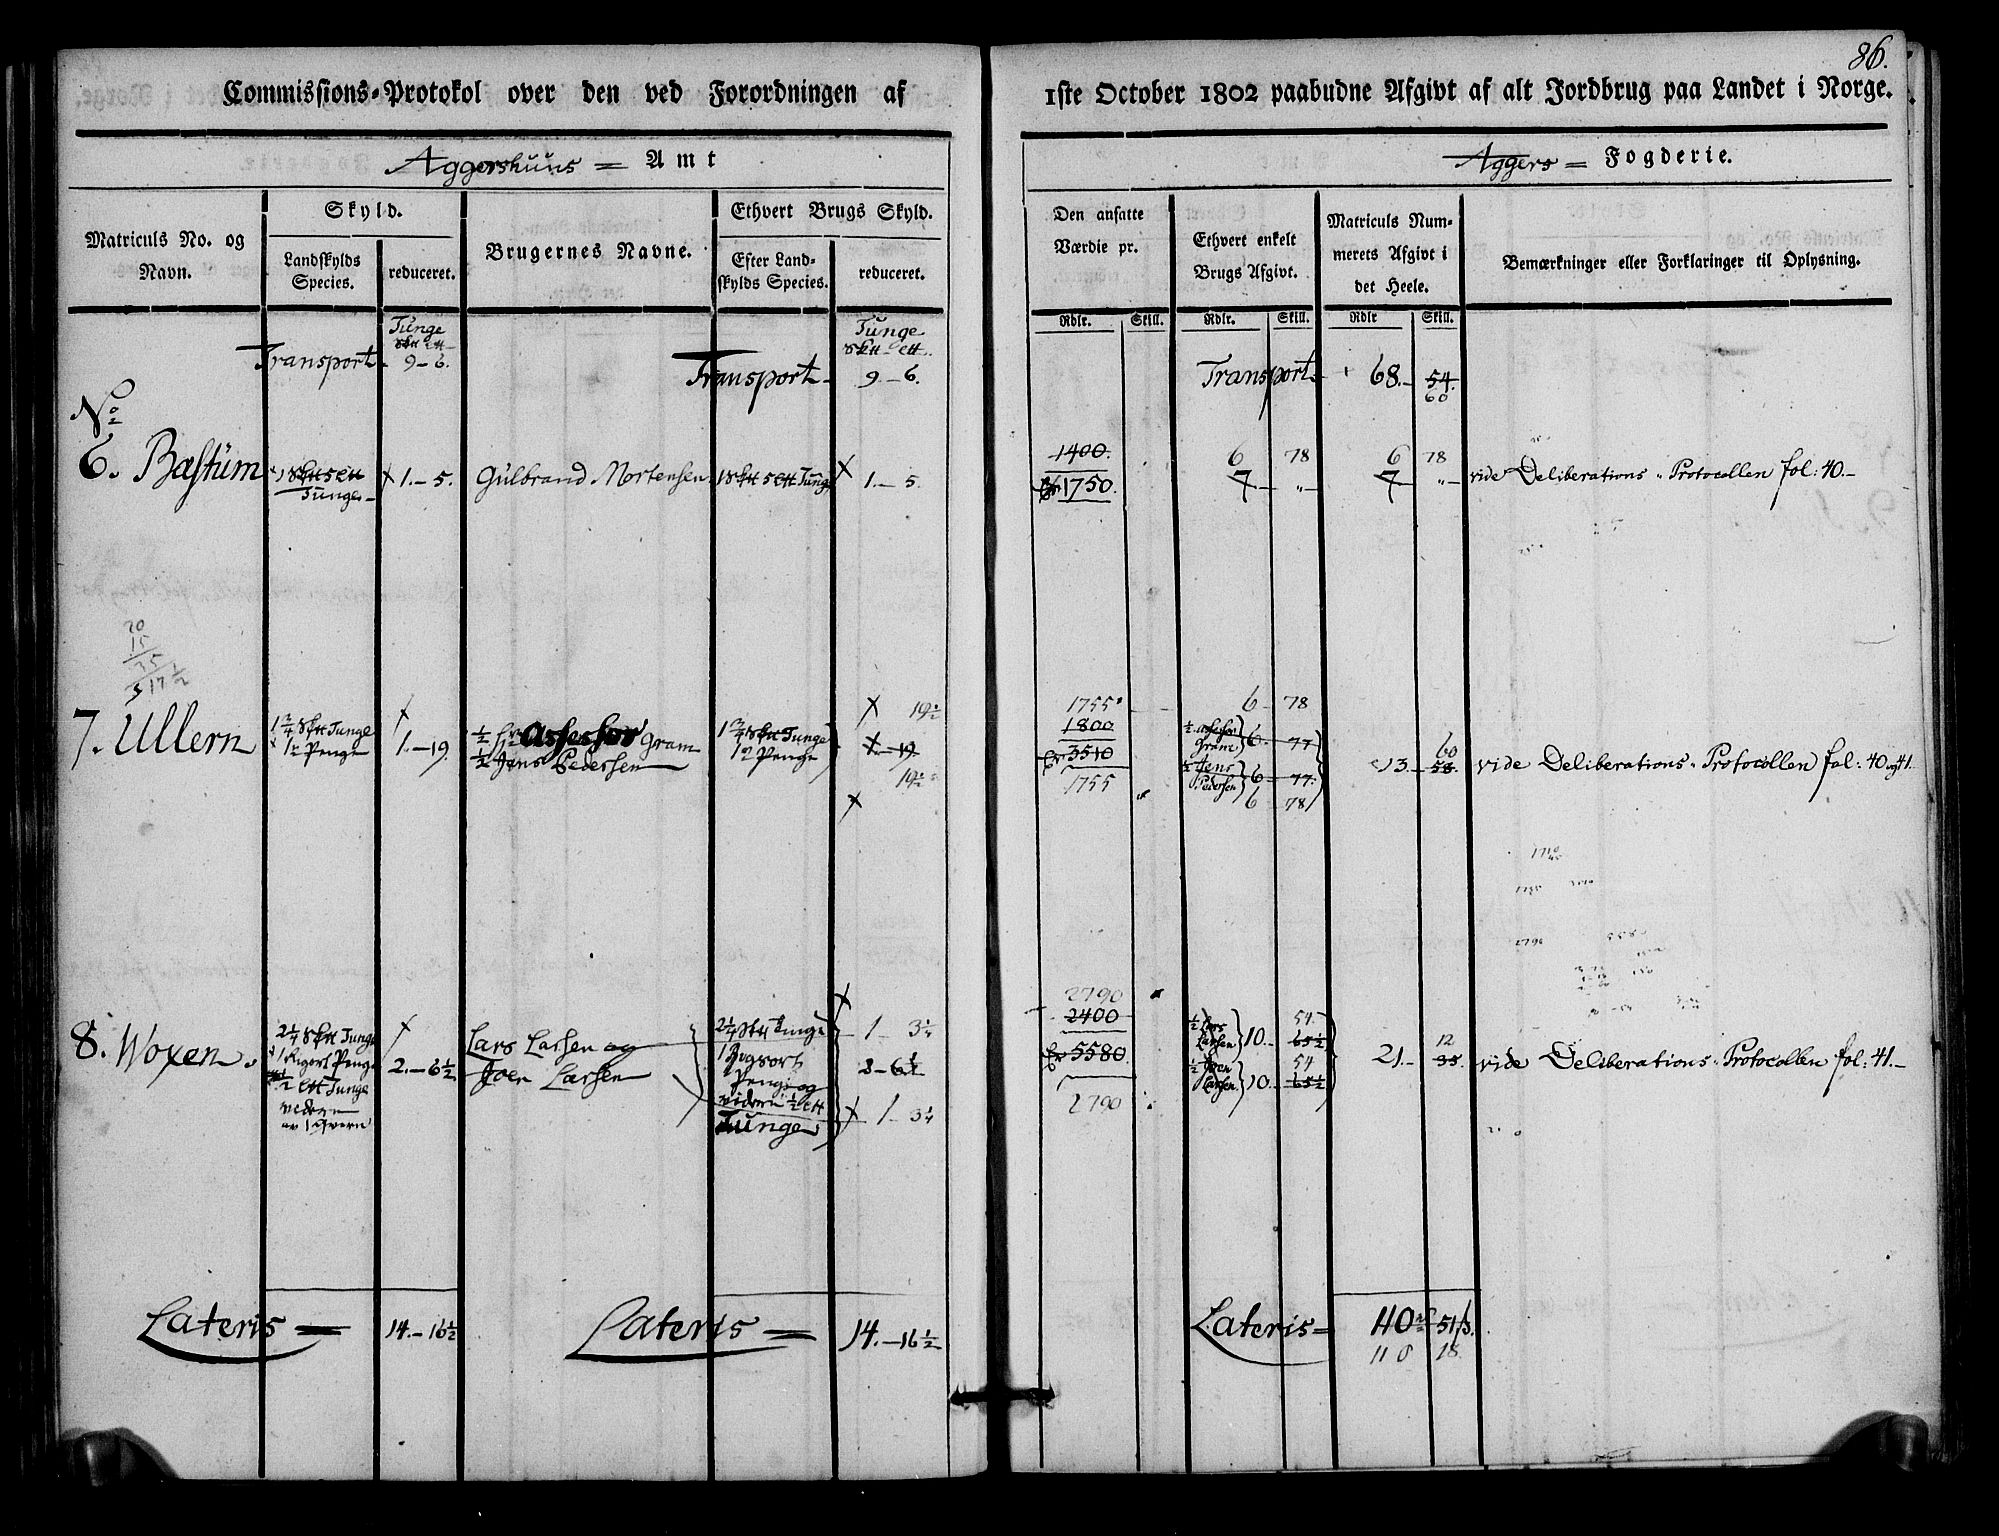 86.
Commissions-Protokol over den ved Forordningen af 1ste October 1802 paabudne Afgivt af alt Jordbrug paa Landet i Norge.
Aggershuus = Amt
Aggers = Fogderie.
Matriculs No. og Navn.
Skyld.
Landskylds Species.
reduceret.
Brugernes Navne.
Ethvert Brugs Skyld.
Efter Landskylds Species.
reduceret.
Den ansatte Værdie pr.
Ethvert enkelt Brugs Afgivt.
Matriculs Nummerets Afgivt i det Heele.
Bemærkninger eller Forklaringer til Oplysning.
Rdlr. Skill. Rdlr. Skill. Rdlr Skill.
Tunge
Tunge
Transport 9 - 6. Transport 9 - 6. Transport 68. 54.
60
No
6. Bæstüm 1 5 Tunge X 1. - 5. Gulbrand Mortensen 5 Tunge X 1. - 5.
1400.
1750.
6 78
7 - „ -
6 78
7 „ -
vide Deliberations-Protocollen fol: 40.-
20
15
35
17 1/2
7. Ullern 1 3/4 Tunge
Penge
X 1. - 19.
1/2 Hr Assessor Gram
1/2 Jens Pedersen
1 3/4 Tunge
Penge
X 19 1/2
1 - 19
19
X
1755
1800
3510
1755
6 - 78
1/2 Assessor Gram 6 - 77
1/2 Jens Pedersen 6 - 77.
6 - 78
60
13. 58.
vide Deliberations-Protocollen fol: 40 og 41.
1710
2790
5580
8. Woxen. 2 1/4 Tunge
Penge
1/2 Tunge
X
2. - 6 1/2
Lars Larsen og
Joen Larsen
2 1/4 Tunge
Penge og
videre 1/2
Tunge
X
1 - 3 1/4
2 - 6 1/2
X 1 - 3 1/4
2790
2400
5580
2790
1/2 Lars Larsen 10. 54. 65 1/2
1/2 Joen Larsen 10. 54 65 1/2
12
21. 35.
vide Deliberations-Protocollen fol: 41.-
Lateris = 14. - 16 1/2 Lateris = 14. - 16 1/2 Lateris = 110 51
110 18